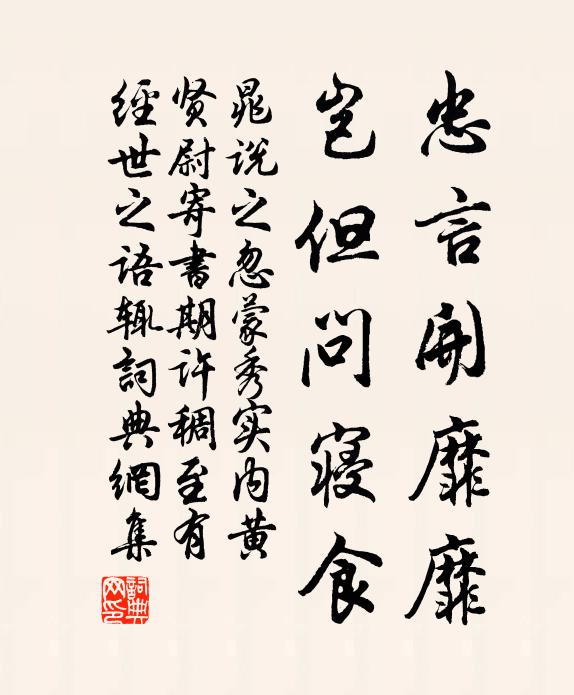 忠言開靡靡
岂但問寝食
晁说之忽蒙秀实内黄
贤尉寄書期许稠至有
經世之语辄詞典網集
詞典網印